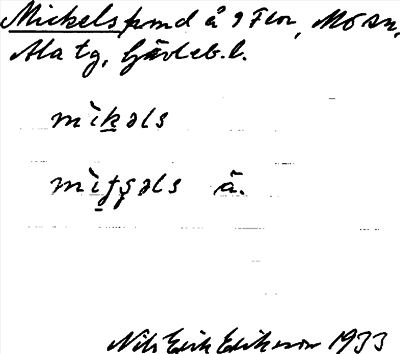 Mickelspond å 9 Flor, Mo sn,
Ala tg, Gävleb. l.
mìkəls
mìtʂəls ä.
Nils Erik Eriksson 1933